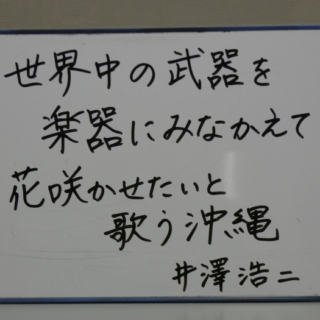 世界中の武器を
楽器にみなかえて
花咲かせたいと
歌う沖縄
井澤浩二